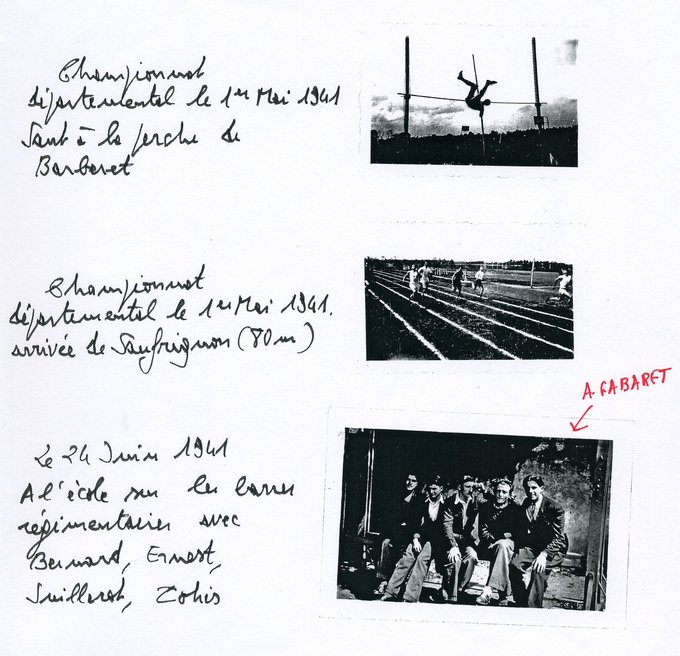 Championnat
départemental le 1er Mai 1941
Saut à la perche de
Barbaret
Championnat
départemental le 1er Mai 1941.
arrivée de (80 m)
A. GABARET
Le 24 Juin 1941
A l'école sur les barres
régimentaires avec
Bernard, Ernest,